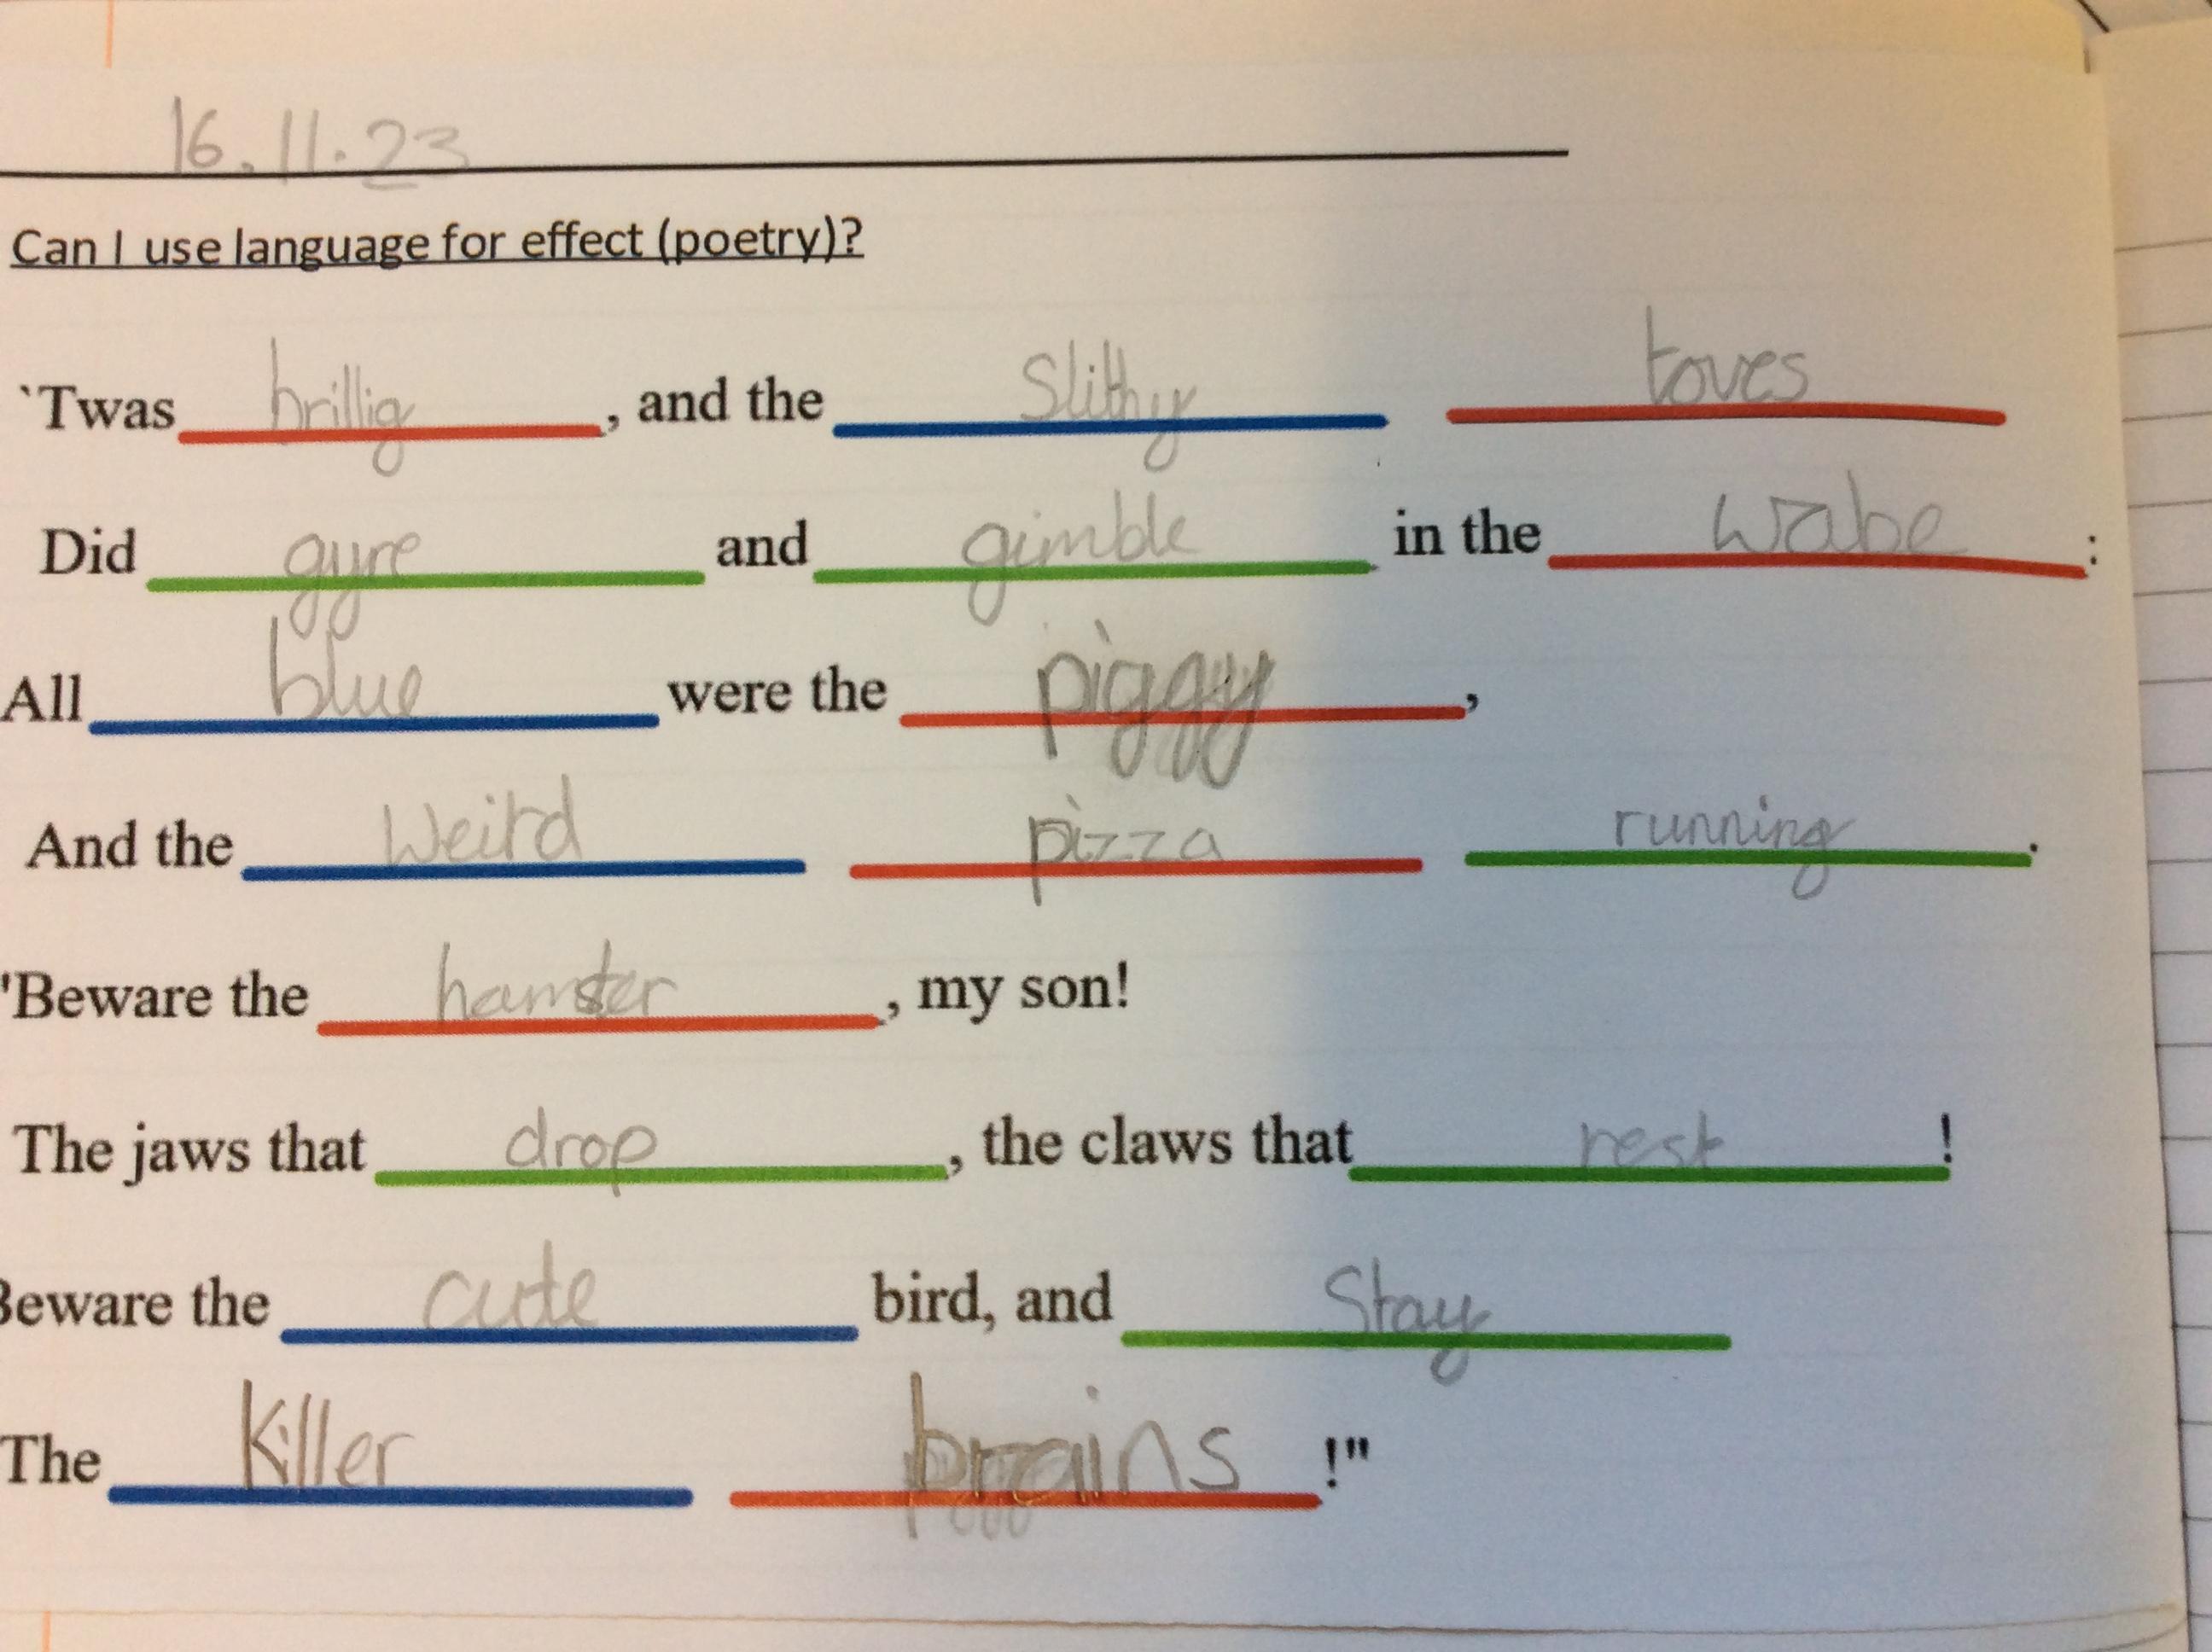 16.11.23
Can I use language for effect (poetry)?
`Twas brillig, and the Slithy toves
Did gyre and gimble in the wabe:
All blue were the piggy,
And the Weird pizza running.
'Beware the hamster, my son!
The jaws that drop, the claws that rest!
Beware the cute bird, and Stay
The Killer brains!"